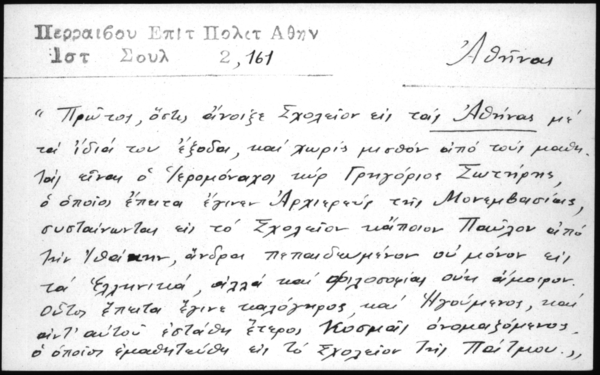 Περραιβου Επιτ Πολετ Αθην
1στ Σουλ 2,161
Ἀθῆναι
"Πρῶτος, ὅστις ἄνοιξε Σχολεῖον εἰς τὰς Ἀθήνας μέ
τά ἴδιά του ἔξοδα, καί χωρίς μισθόν ἀπό τούς μαθη
τάς εἶναι ὁ Ἱερομόναχος κύρ Γρηγόριος Σωτήρης,
ὁ ὁποῖος ἔπειτα ἔγινεν Ἀρχιερεύς τῆς Μονεμβασίας,
συσταίνωντας εἰς τό Σχολεῖον κάποιον Παῦλον ἀπό
τήν Ἰθάκην, ἄνδρα πεπαιδευμένον οὐ μόνον εἰς
τά Ἑλληνικά, ἀλλά καί Φιλοσοφίας οὐκ ἄμοιρον.
Οὗτος ἔπειτα ἔγινε καλόγηρος, καί Ἡγούμενος, καί
ἀντ' αὐτοῦ ἐστάθη ἕτερος Κοσμᾶς ὀνομαζόμενος,
ὁ ὁποῖος ἐμαθητεύθη εἰς τό Σχολεῖον τῆς Πάτμου.,,